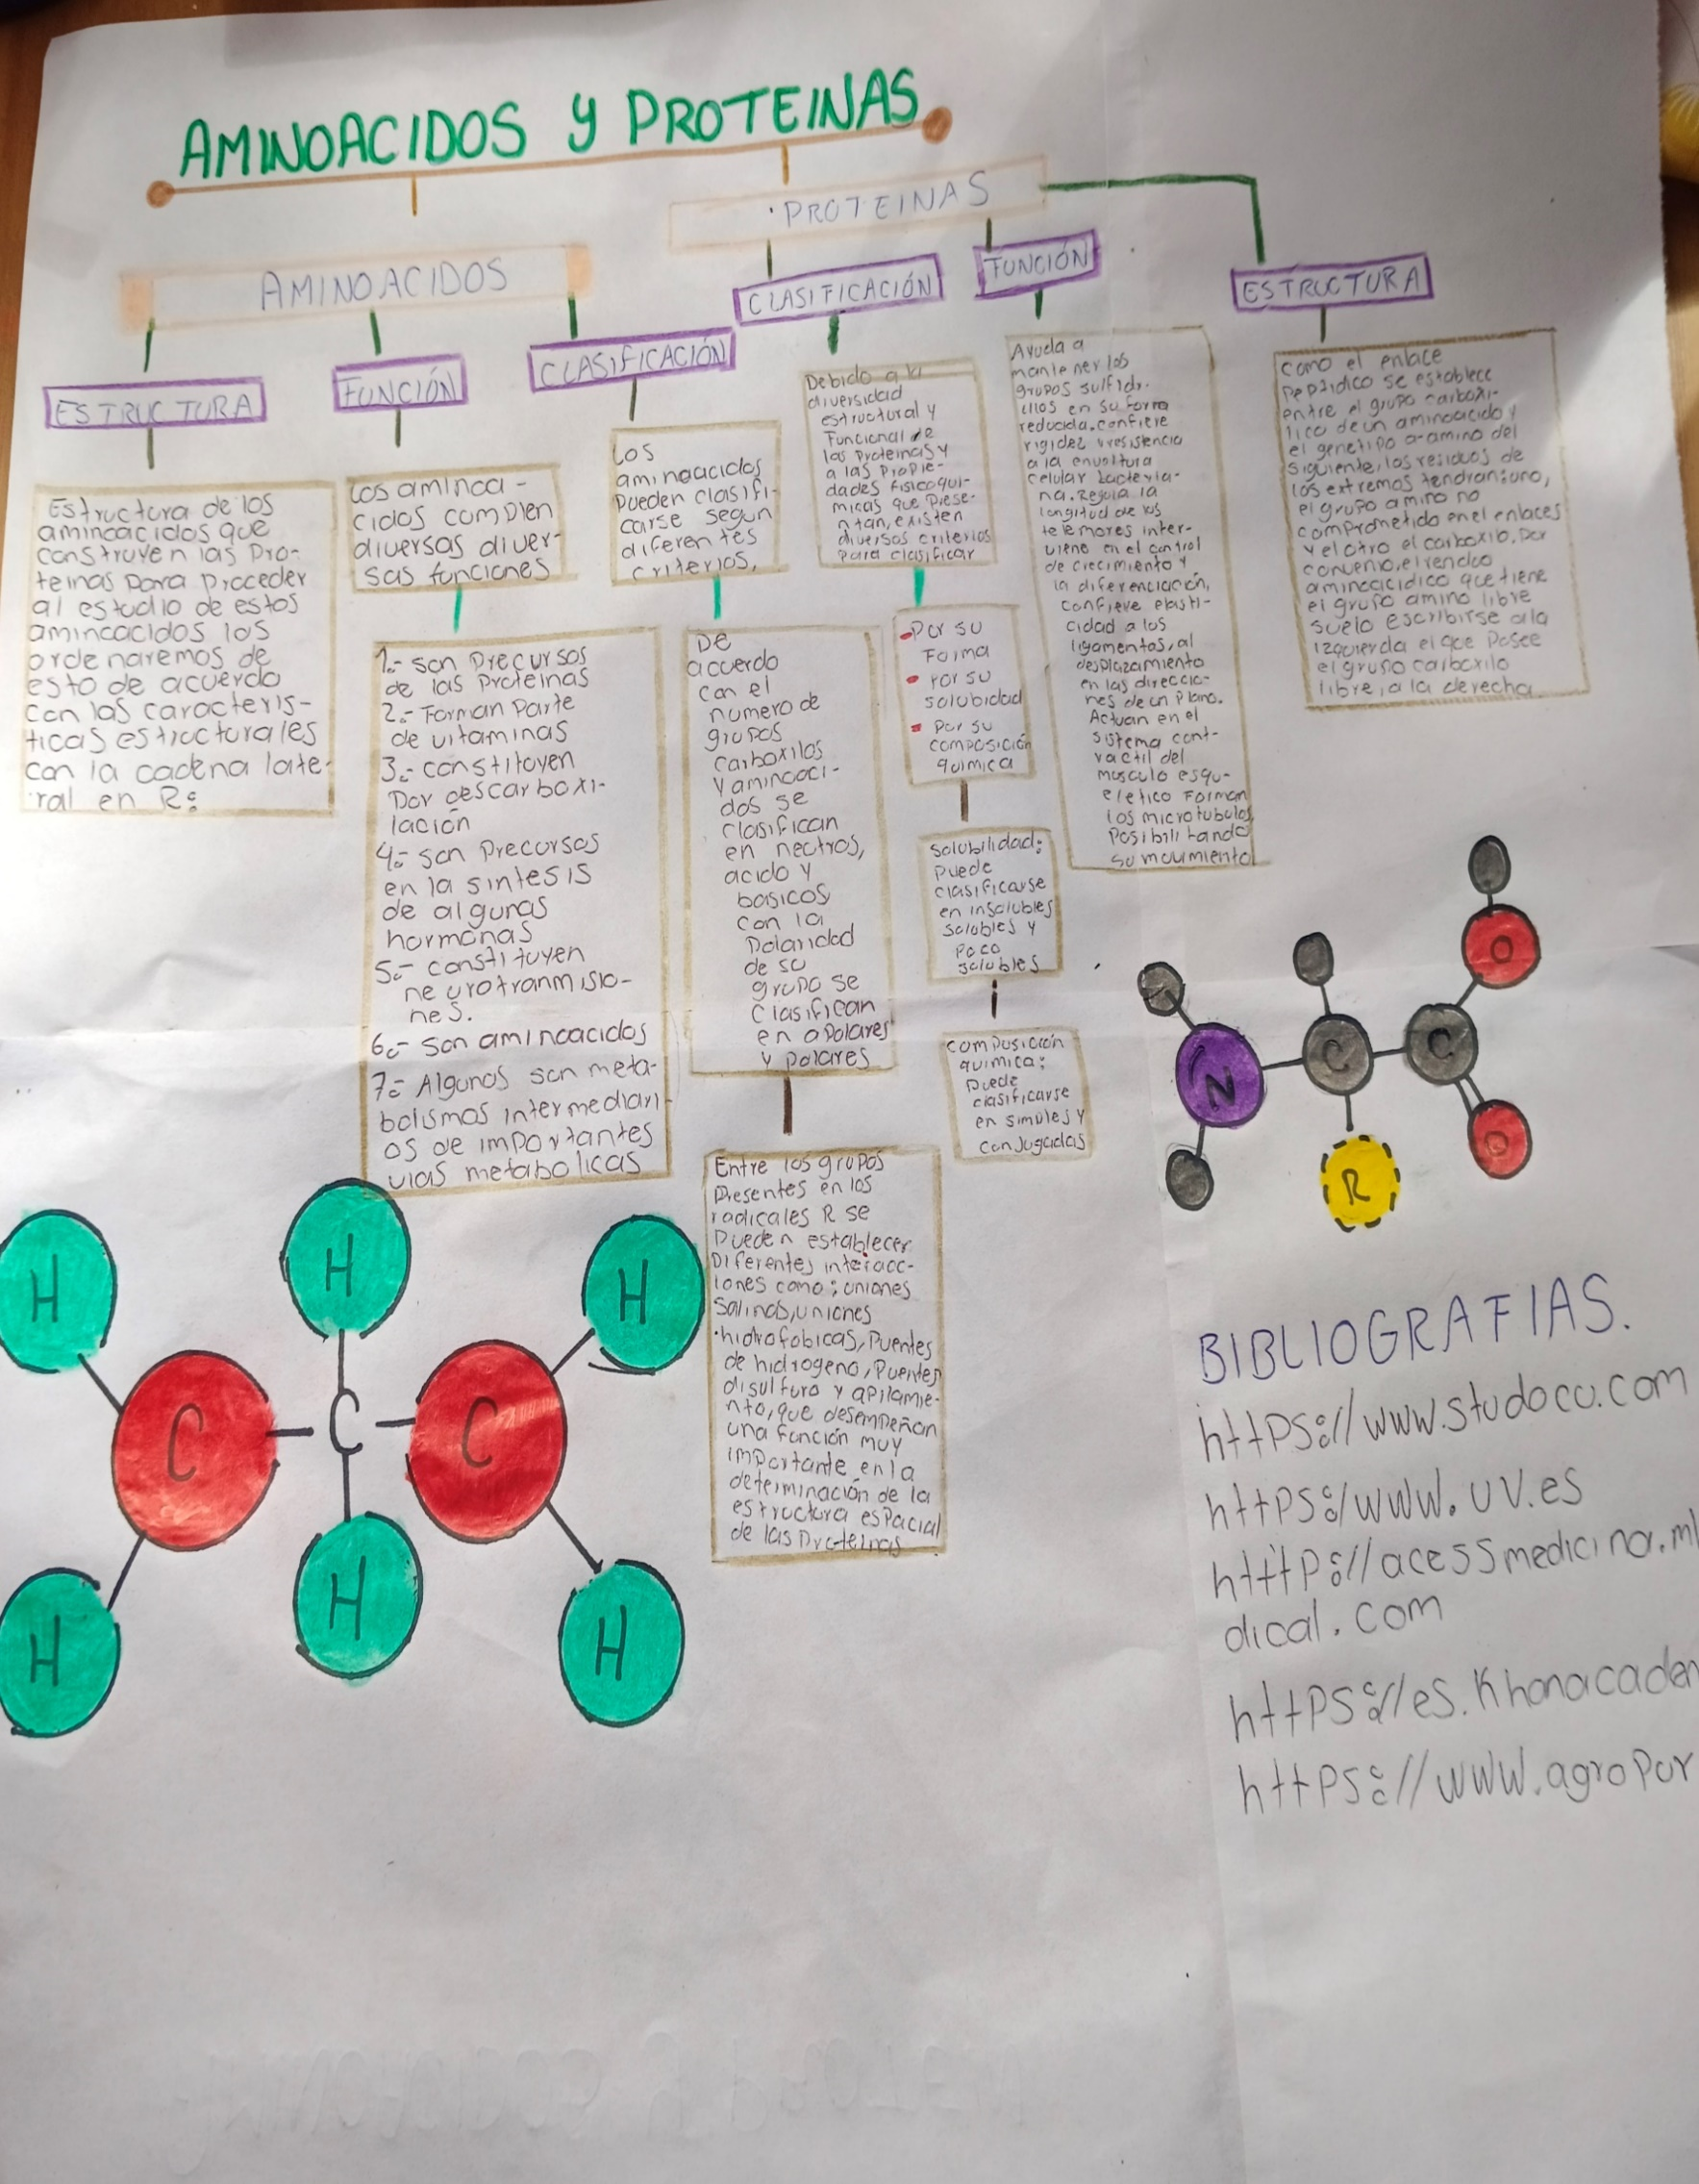 AMINOACIDOS y PROTEINAS
AMINOACIDOS
ESTRUCTURA
Estructura de los
aminoacidos que
construyen las Pro-
teinas para Proceder
al estudio de estos
aminoacidos los
ordenaremos de
esto de acuerdo
con las caracteris-
ticas estructurales
con la cadena late-
ral en R:
FUNCIÓN
Los aminoa-
cidos cumplen
diversas diver-
sas funciones
1.- son Precursos
de las Proteinas
2.- Forman Parte
de vitaminas
3.- constituyen
Por descarboxi-
lación
4.- son Precursos
en la sintesis
de algunas
hormonas
5.- constituyen
neurotranmisio-
nes.
6.- son aminoacidos
7.- Algunos son meta-
bolismos intermediari-
os de importantes
vias metabolicas
CLASIFICACIÓN
Los
aminoacidos
Pueden clasifi-
carse segun
diferentes
criterios,
De
acuerdo
con el
numero de
grupos
carboxilos
y aminoaci-
dos se
clasifican
en neutros,
acido y
basicos
con la
Polaridad
de su
grupo se
clasifican
en apolares
y polares
Entre los grupos
Presentes en los
radicales R se
Pueden establecer
Diferentes interacc-
iones como: uniones
Salinas, uniones
hidrofobicas, Puentes
de hidrogeno, Puentes
disulfuro y apilamie-
nto, que desempeñan
una función muy
importante en la
determinación de la
estructura espacial
de las Proteinas
PROTEINAS
CLASIFICACIÓN
Debido a la
diversidad
estructural y
Funcional de
las Proteinas y
a las Propie-
dades fisicoqui-
micas que Prese-
ntan, existen
diversos criterios
Para clasificar
Por su
Forma
Por su
solubidad
Por su
composición
quimica
Solubilidad:
Puede
clasificarse
en insolubles
solubles y
Poco
solubles
composición
quimica:
Puede
clasificarse
en simples y
conjugadas
FUNCIÓN
Ayuda a
mantener los
grupos sulfidr-
ilos en su forma
reducida. confiere
rigidez y resistencia
a la envoltura
celular bacteria-
na. Regula la
longitud de los
telemores inter-
viene en el control
de crecimiento y
la diferenciación,
confieve elasti-
cidad a los
ligamentos, al
desplazamiento
en las direccio-
nes de un Plano.
Actuan en el
sistema cont-
ractil del
musculo esqu-
eletico Forman
los microtubulos
Posibilitando
su movimiento
ESTRUCTURA
Como el enlace
Peptidico se establece
entre el grupo carboxi-
lico de un aminoacido y
el genetipo a-amino del
siguiente, los residuos de
los extremos tendran: uno,
el grupo amino no
comprometido en el enlaces
y el otro el carboxilo, Por
convenio, el rendeo
aminoacidico que tiene
el grupo amino libre
suelo escribirse a la
izquierda el que Posee
el grupo carboxilo
libre, a la derecha
O
N
C
C
O
R
H
H
H
C
C
C
H
H
H
BIBLIOGRAFIAS.
https://www.studocu.com
https:/www.uv.es
htttp://acessmedicina.m
dical.com
https://es.Khanacadem
https://www.agroPor